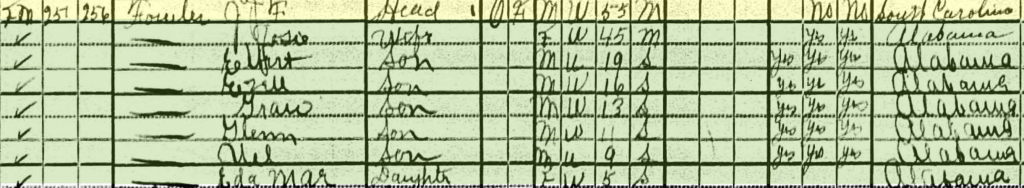 FM 257 256 Fowler J T F Head 1 O F M W 55 M No No South Carolina
✓ — Josie Wife F W 45 M Yes Yes Alabama
✓ — Elbert Son M W 19 S Yes Yes Yes Alabama
✓ — Ezell Son M W 16 S Yes Yes Yes Alabama
✓ — Son M W 13 S Yes Yes Yes Alabama
✓ — Glenn Son M W 11 S Yes Yes Yes Alabama
✓ — Son M W 9 S Yes Yes Yes Alabama
✓ — Eda Mar Daughter F W 5 S Alabama